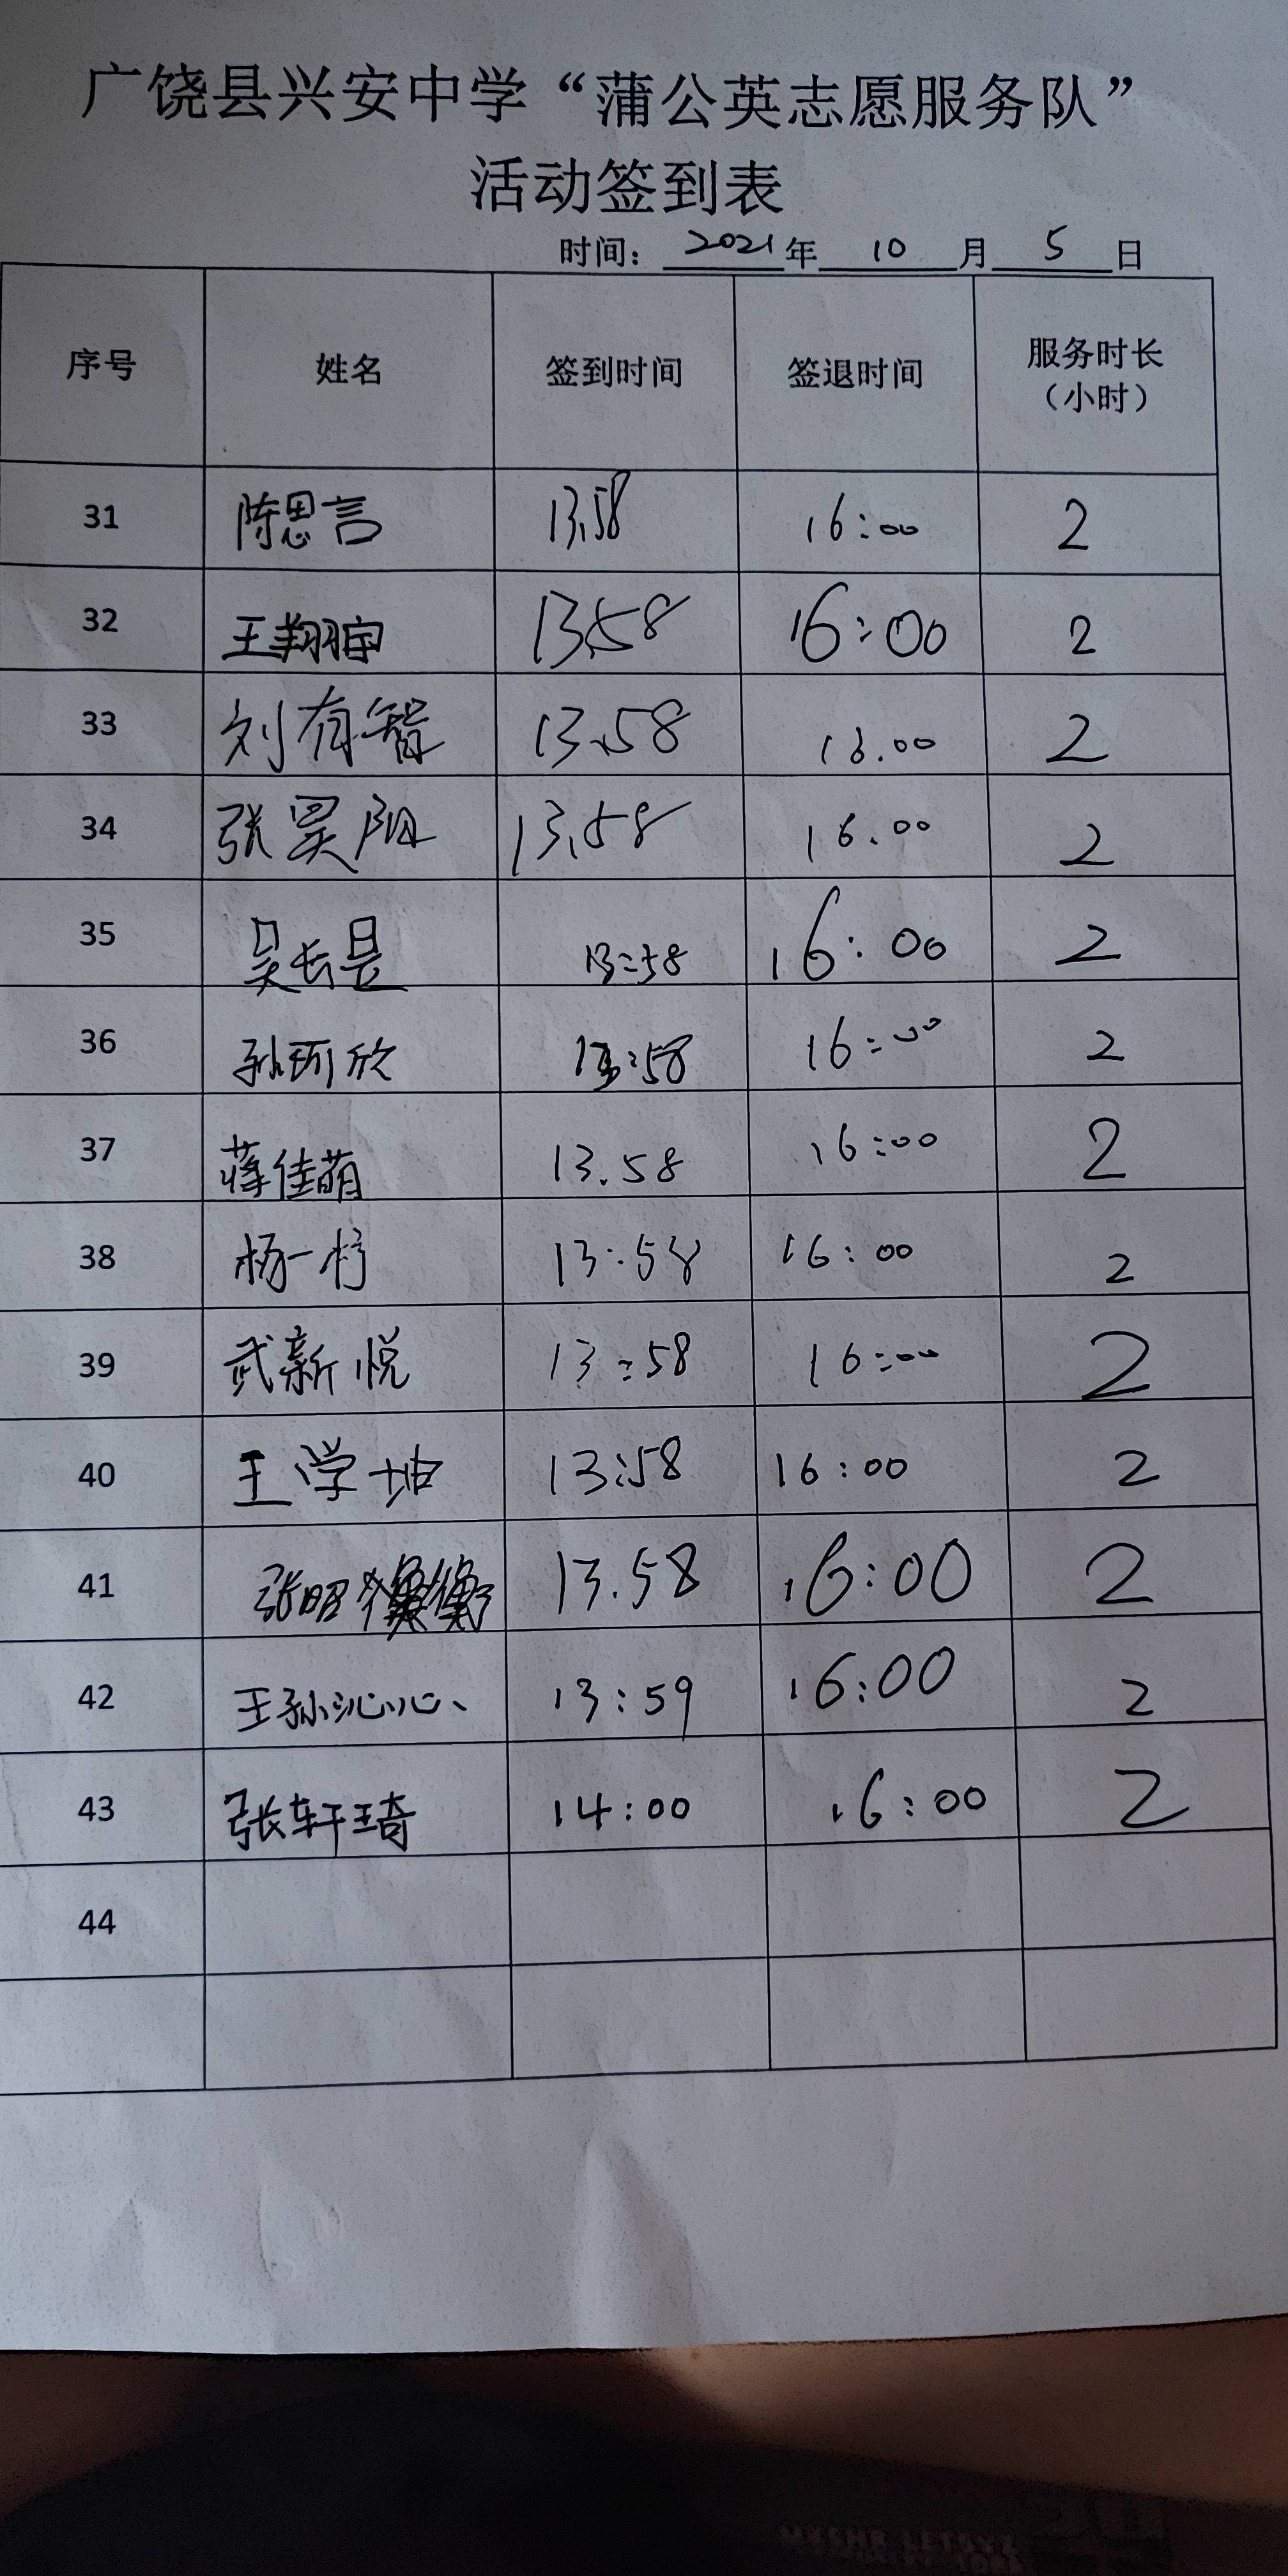 广饶县兴安中学“蒲公英志愿服务队”
活动签到表
时间： 2021 年 10 月 5 日
序号 姓名 签到时间 签退时间 服务时长（小时）
31 陈思言 13.58 16:00 2
32 王翔宇 13.58 16:00 2
33 刘有智 13.58 16.00 2
34 张昊阳 13.58 16.00 2
35 吴长昱 13:58 16:00 2
36 孙珂欣 13:58 16:00 2
37 蒋佳萌 13.58 16:00 2
38 杨一柠 13:58 16:00 2
39 武新悦 13:58 16:00 2
40 王学坤 13:58 16:00 2
41 张昭 13.58 16:00 2
42 王孙沁心 13:59 16:00 2
43 张轩琦 14:00 16:00 2
44